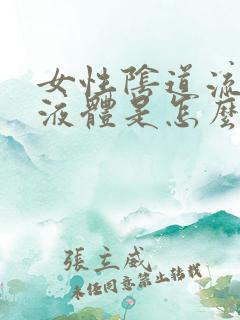 女性陰道流
液體是怎麼
張立威
未經同意禁止轉載